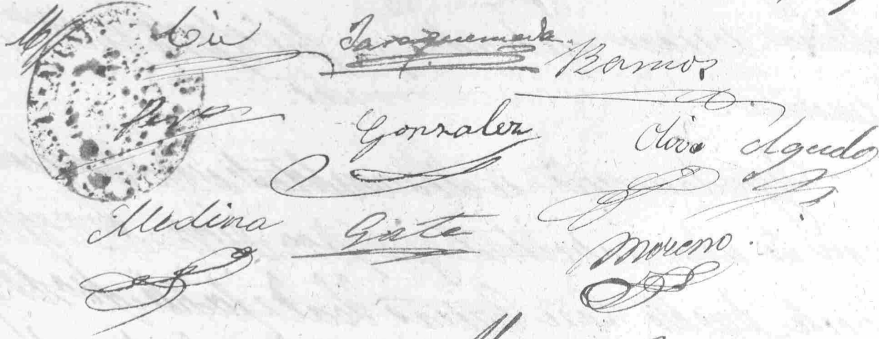 Jaraquemada Ramos
Gonzalez Oliva Agudo
Medina Gate
Moreno